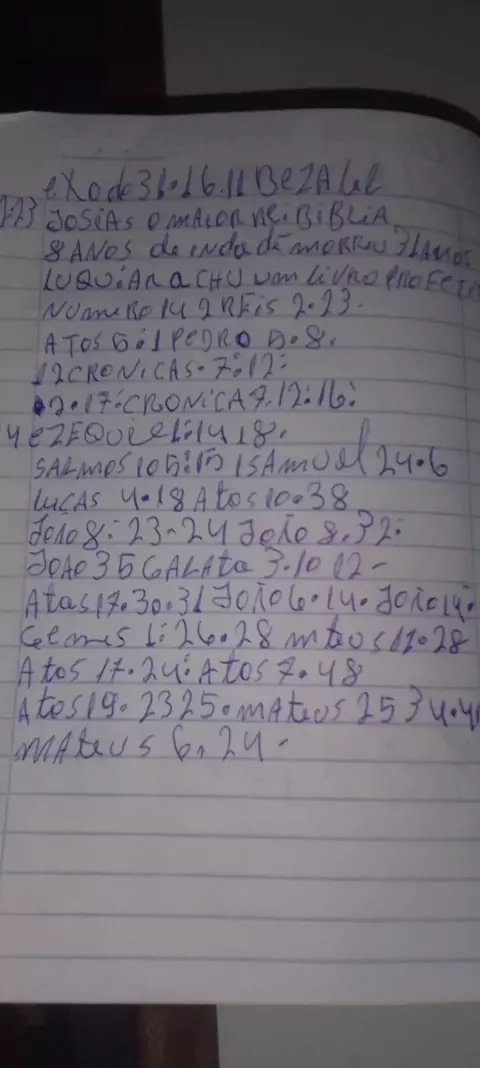 exodo 31.16.11 BEZALEL
2:23 JOSIAS O MAIOR REI BIBLIA
8 ANOS de indade MORREU 31 ANOS
ACHU um LIVRO
NUMERO 14 2 REIS 2.23.
ATOS 5:1 PEDRO 5.8.
12 CRONICAS.7:12:
2.17:CRONICA 7.12:16:
4 EZEQUIEL:14 18.
SALMOS 105:15 1SAmuel 24.6
LUCAS 4.18 Atos 10.38
João 8:23-24 João 8.32:
JOAO 3 5 GALATA 3.10 12-
Atas 17.30.31 João 6.14. João 14.
1:26.28 mteus 11.28
Atos 17.24: Atos 7.48
Atos 19.2325.mAteus 25 34.41
mAteus 6.24.